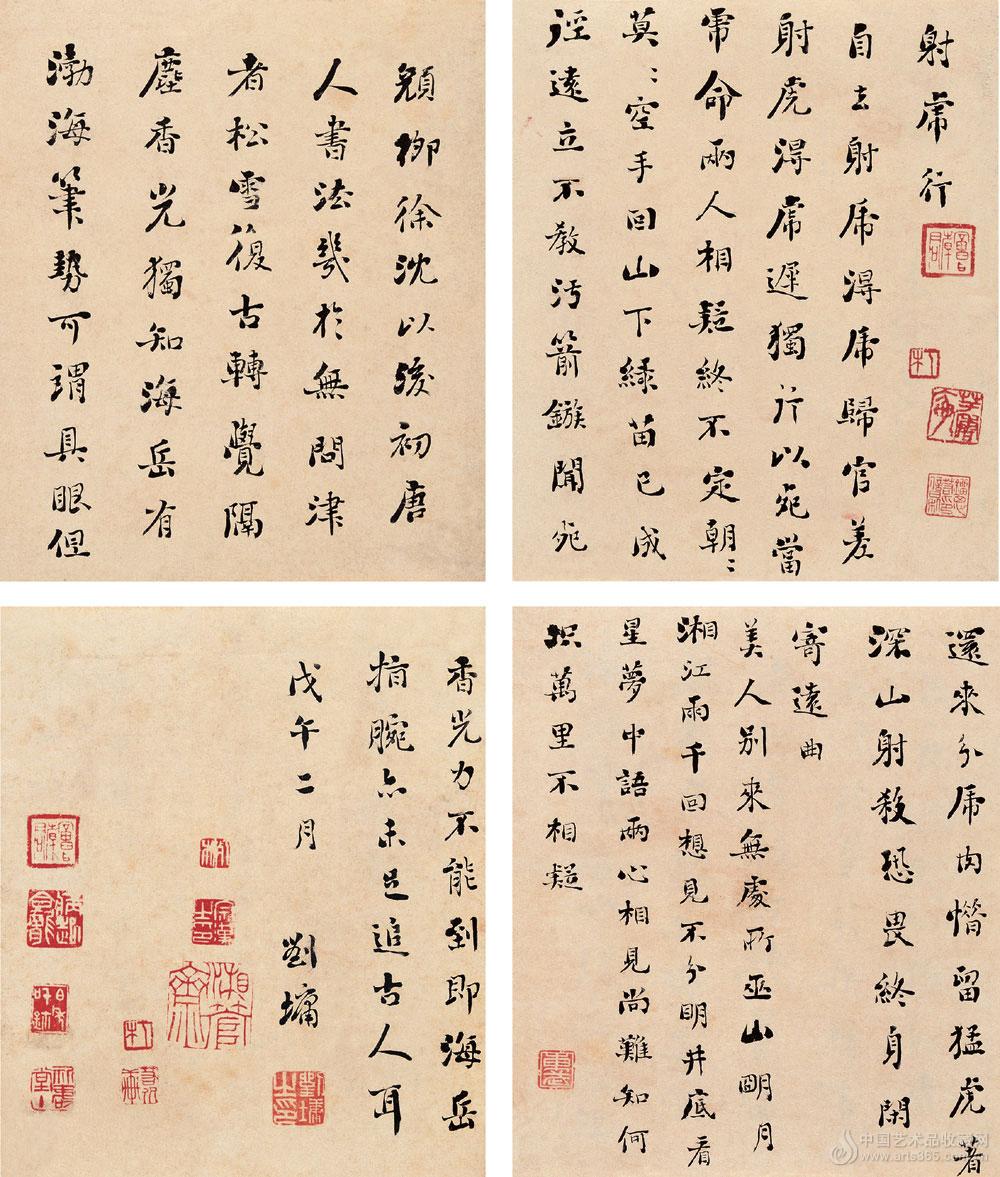 射虎行
自去射虎得虎歸官差
射虎得虎遲獨行以死當
虎命兩人相疑終不定朝〻
莫〻空手回山下綠苗已成
逕遠立不敢污箭鏃聞死
還來分虎肉惜留猛虎著
深山射殺恐畏終身閑
寄遠曲
美人別來無處所巫山明月
湘江雨千回想見不分明井底看
星夢中語兩心相見尚難知何
況萬里不相疑
顏柳徐沈以後初唐
人書法幾於無問津
者松雪復古轉覺隔
塵香光獨知海岳有
渤海筆勢可謂具眼但
香光力不能到即海岳
指腕亦未足追古人耳
戊午二月 劉墉
劉墉之印
中国艺术品收藏网